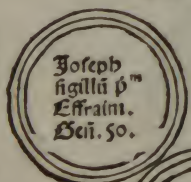 Joseph
ſigillū p̄ m
Effraim.
Geñ. 50.